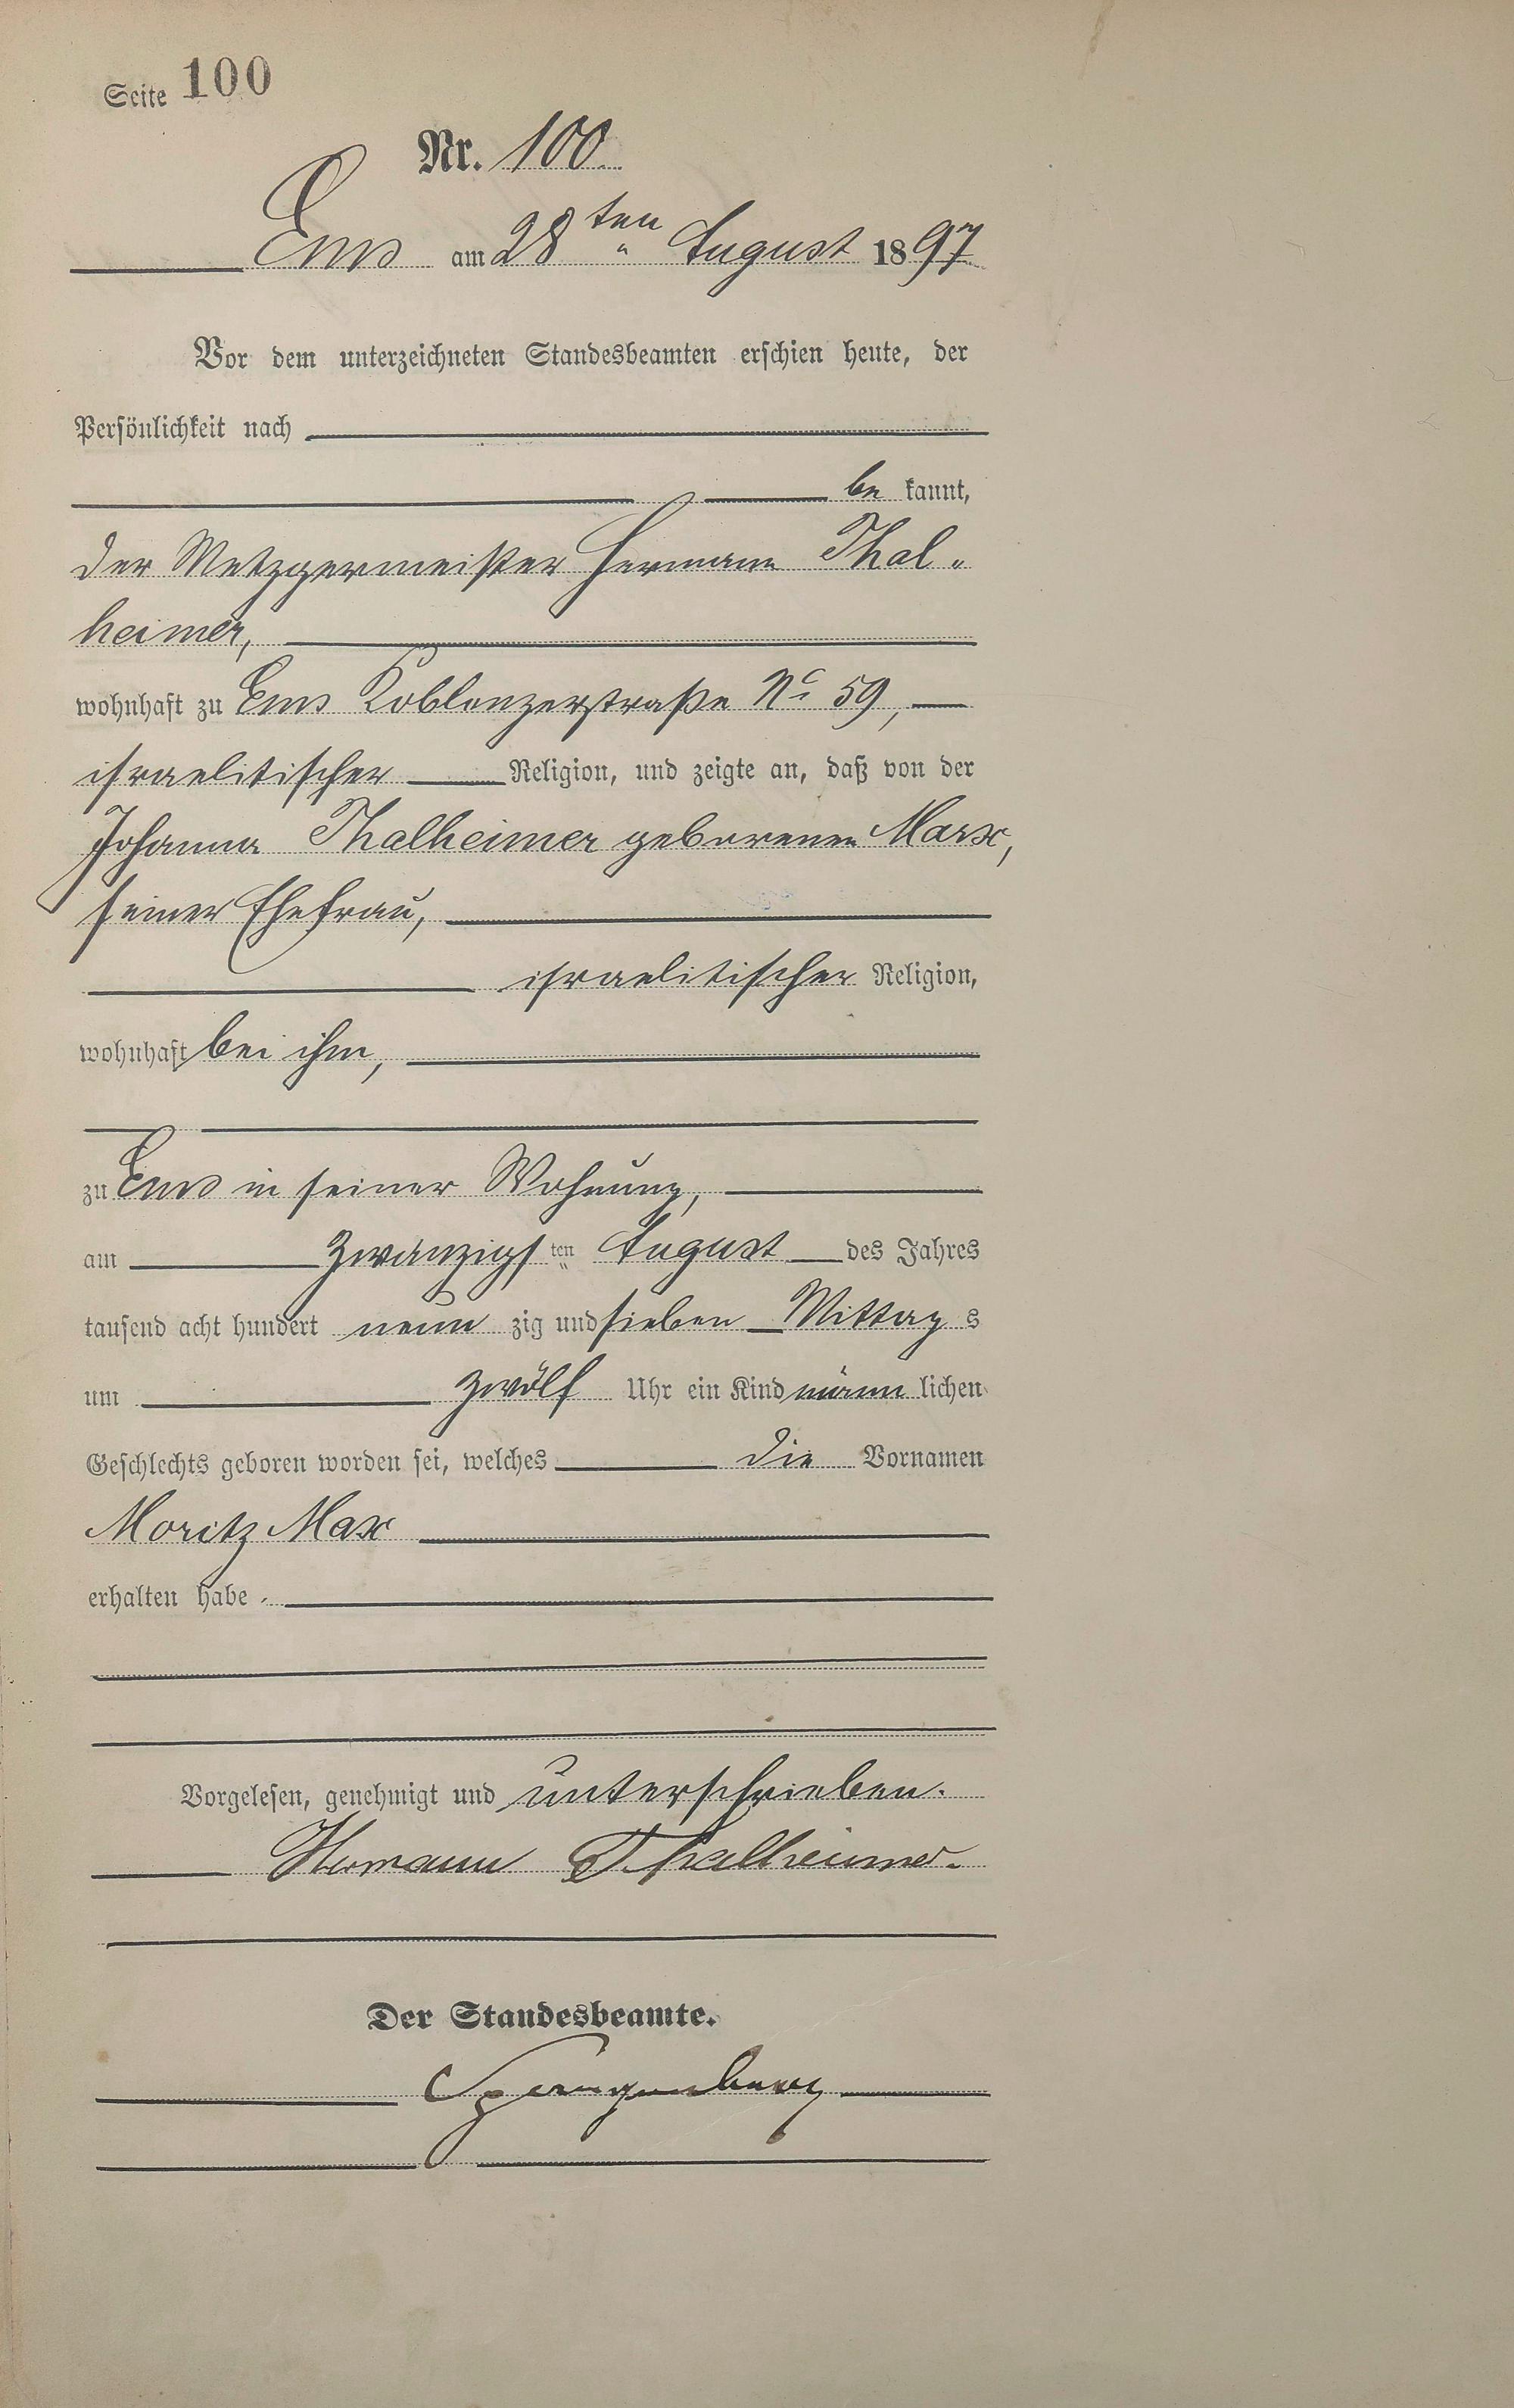 Seite 100
Nr. 100
Ems am 28ten August 1897
Vor dem unterzeichneten Standesbeamten erschien heute, der
Persönlichkeit nach
be kannt,
der Metzgermeister Hermann Thal-
heimer,
wohnhaft zu Ems Koblenzerstraße No 59,
israelitischer Religion, und zeigte an, daß von der
Johanna Thalheimer geborenen Marx,
seiner Ehefrau,
israelitischer Religion,
wohnhaft bei ihm,
zu Ems in seiner Wohnung,
am zwanzigsten August des Jahres
tausend acht hundert neun zig und sieben Mittags
um zwölf Uhr ein Kind männ lichen
Geschlechts geboren worden sei, welches die Vornamen
Moritz Max
erhalten habe.
Vorgelesen, genehmigt und unterschrieben.
Hermann Thalheimer.
Der Standesbeamte.
Spangenberg